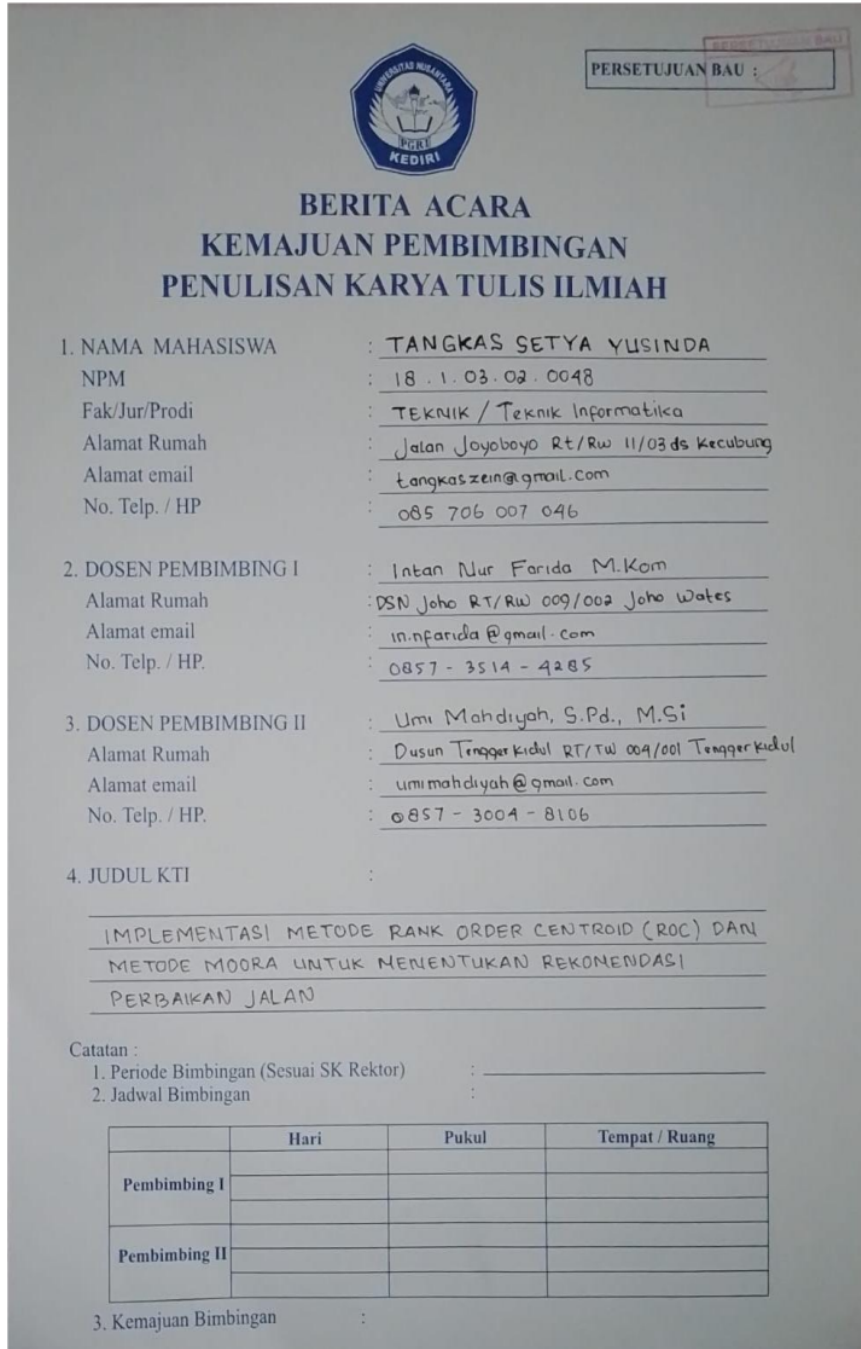 PERSETUJUAN BAU
PERSETUJUAN BAU :
UNIVERSITAS NUSANTARA
PGRI
KEDIRI
BERITA ACARA
KEMAJUAN PEMBIMBINGAN
PENULISAN KARYA TULIS ILMIAH
1. NAMA MAHASISWA : TANGKAS SETYA YUSINDA
NPM : 18.1.03.02.0048
Fak/Jur/Prodi : TEKNIK / Teknik Informatika
Alamat Rumah : Jalan Joyoboyo Rt/Rw 11/03 ds Kecubung
Alamat email : tangkaszein@gmail.com
No. Telp. / HP : 085 706 007 046
2. DOSEN PEMBIMBING I : Intan Nur Farida M.Kom
Alamat Rumah : DSN Joho RT/RW 009/002 Joho Wates
Alamat email : in.nfarida@gmail.com
No. Telp. / HP. : 0857 - 3514 - 4285
3. DOSEN PEMBIMBING II : Umi Mahdiyah, S.Pd., M.Si
Alamat Rumah : Dusun Tengger Kidul RT/TW 004/001 Tengger kidul
Alamat email : umimahdiyah@gmail.com
No. Telp. / HP. : 0857 - 3004 - 8106
4. JUDUL KTI :
IMPLEMENTASI METODE RANK ORDER CENTROID (ROC) DAN
METODE MOORA UNTUK MENENTUKAN REKOMENDASI
PERBAIKAN JALAN
Catatan :
1. Periode Bimbingan (Sesuai SK Rektor) :
2. Jadwal Bimbingan :
Hari Pukul Tempat / Ruang
Pembimbing I
Pembimbing II
3. Kemajuan Bimbingan :